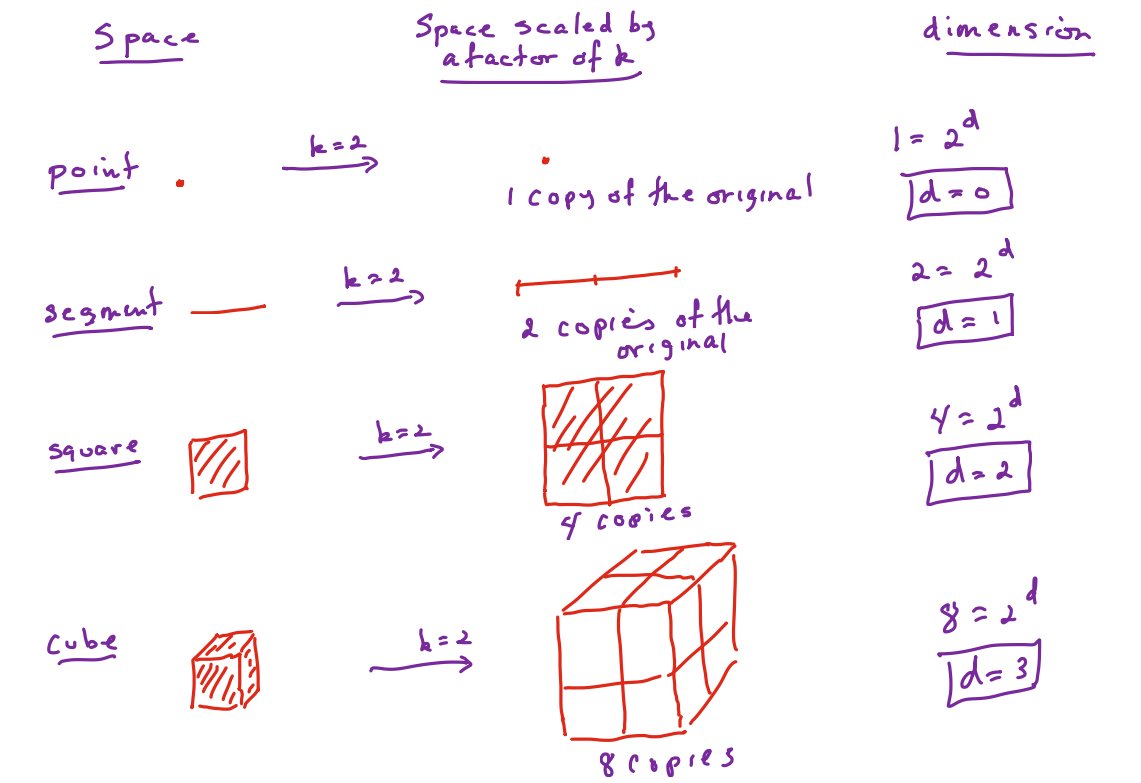 Space
Space scaled by
a factor of k
dimension
point
k=2
1 copy of the original
1 = 2^d
d = 0
segment
k=2
2 copies of the
original
2 = 2^d
d = 1
square
k=2
4 copies
4 = 2^d
d = 2
cube
k=2
8 copies
8 = 2^d
d = 3